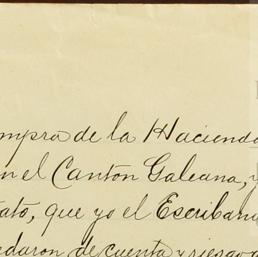 mpra de la Hacienda
n el Canton Galeana, y
tato, que yo el Escriban
edaron de cuenta y riesgo d